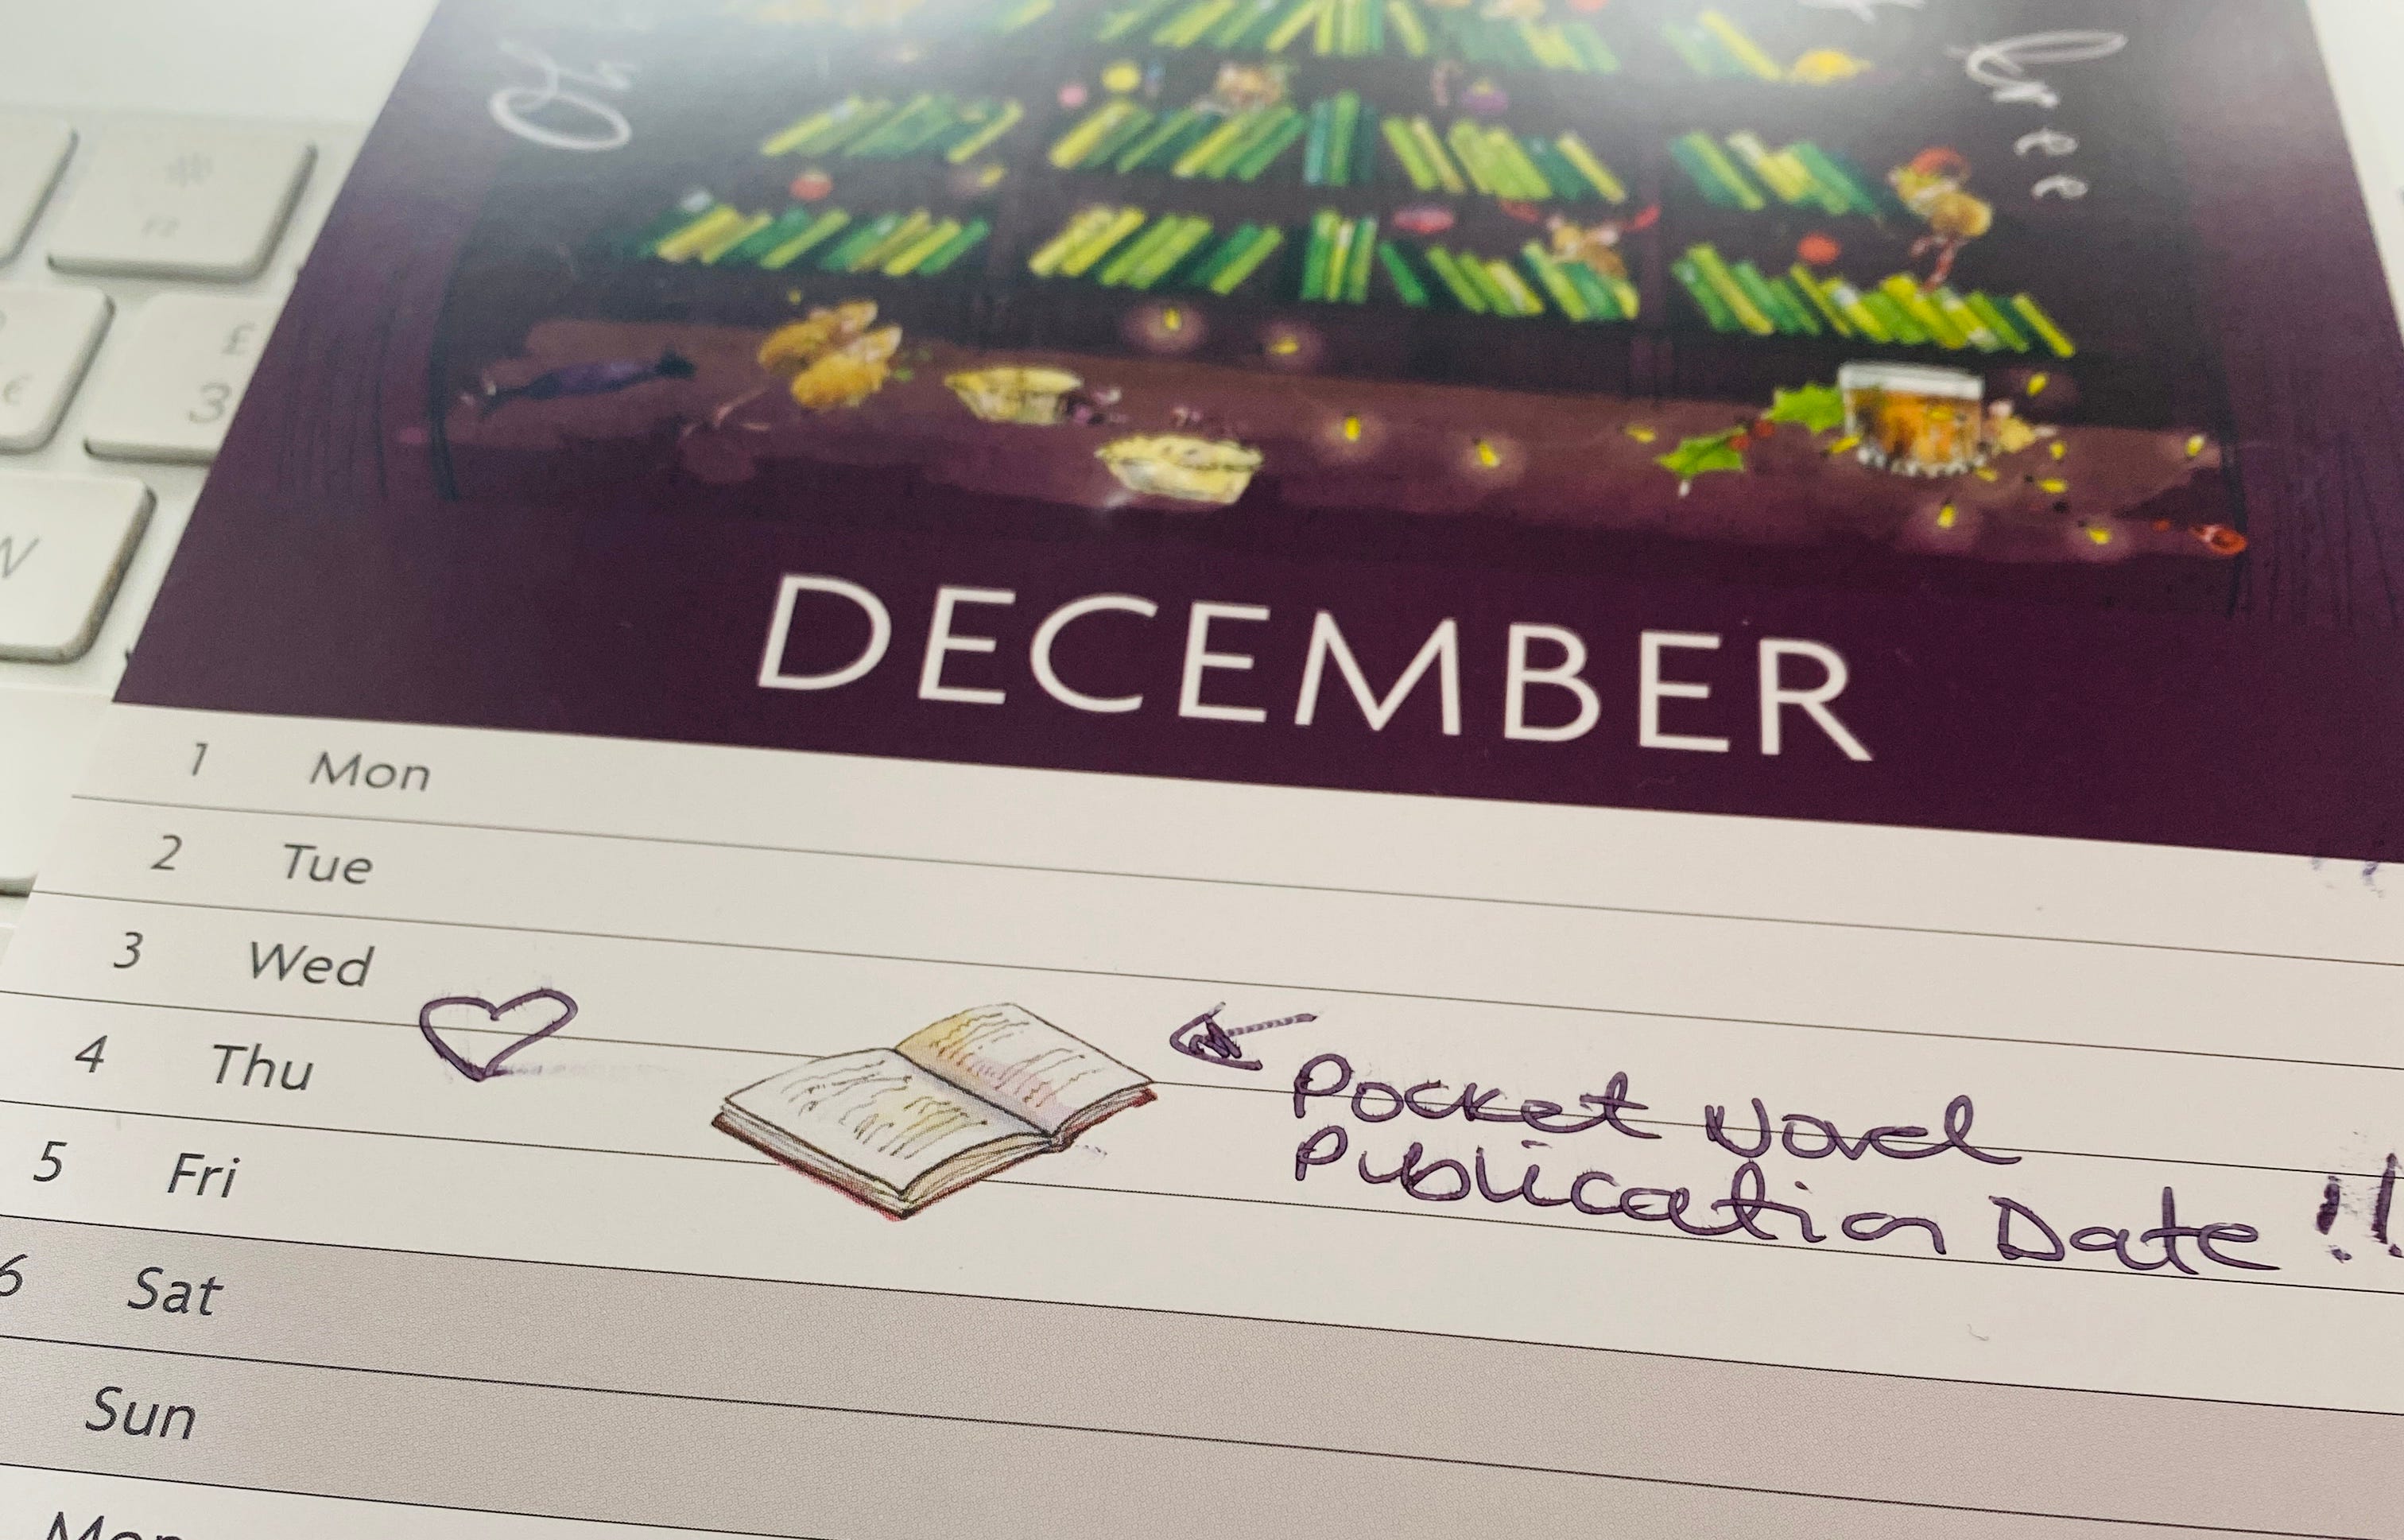 F2
£
3
€
W
DECEMBER
1 Mon
2 Tue
3 Wed
4 Thu
Pocket Novel
Publication Date !!
5 Fri
6 Sat
Sun
Mon